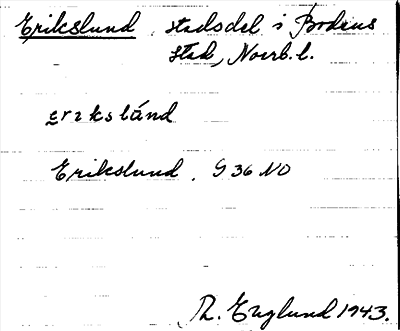 Erikslund, stadsdel i Bodens
stad, Norrb. l.
erikslúnd
Erikslund. G 36 NO
Th. Englund 1943.